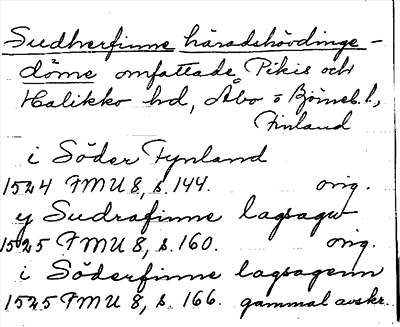 Sudherfinne häradshövdinge-
döme omfattade Pikis och
Halikko hd, Åbo o Björneb. l.,
Finland
i Söder Fynland
1524 FMU 8, s. 144. orig.
y Sudrafinne lagsagu
1525 FMU 8, s. 160. orig.
i Söderfinne lagsagenn
1525 FMU 8, s. 166. gammal avskr.